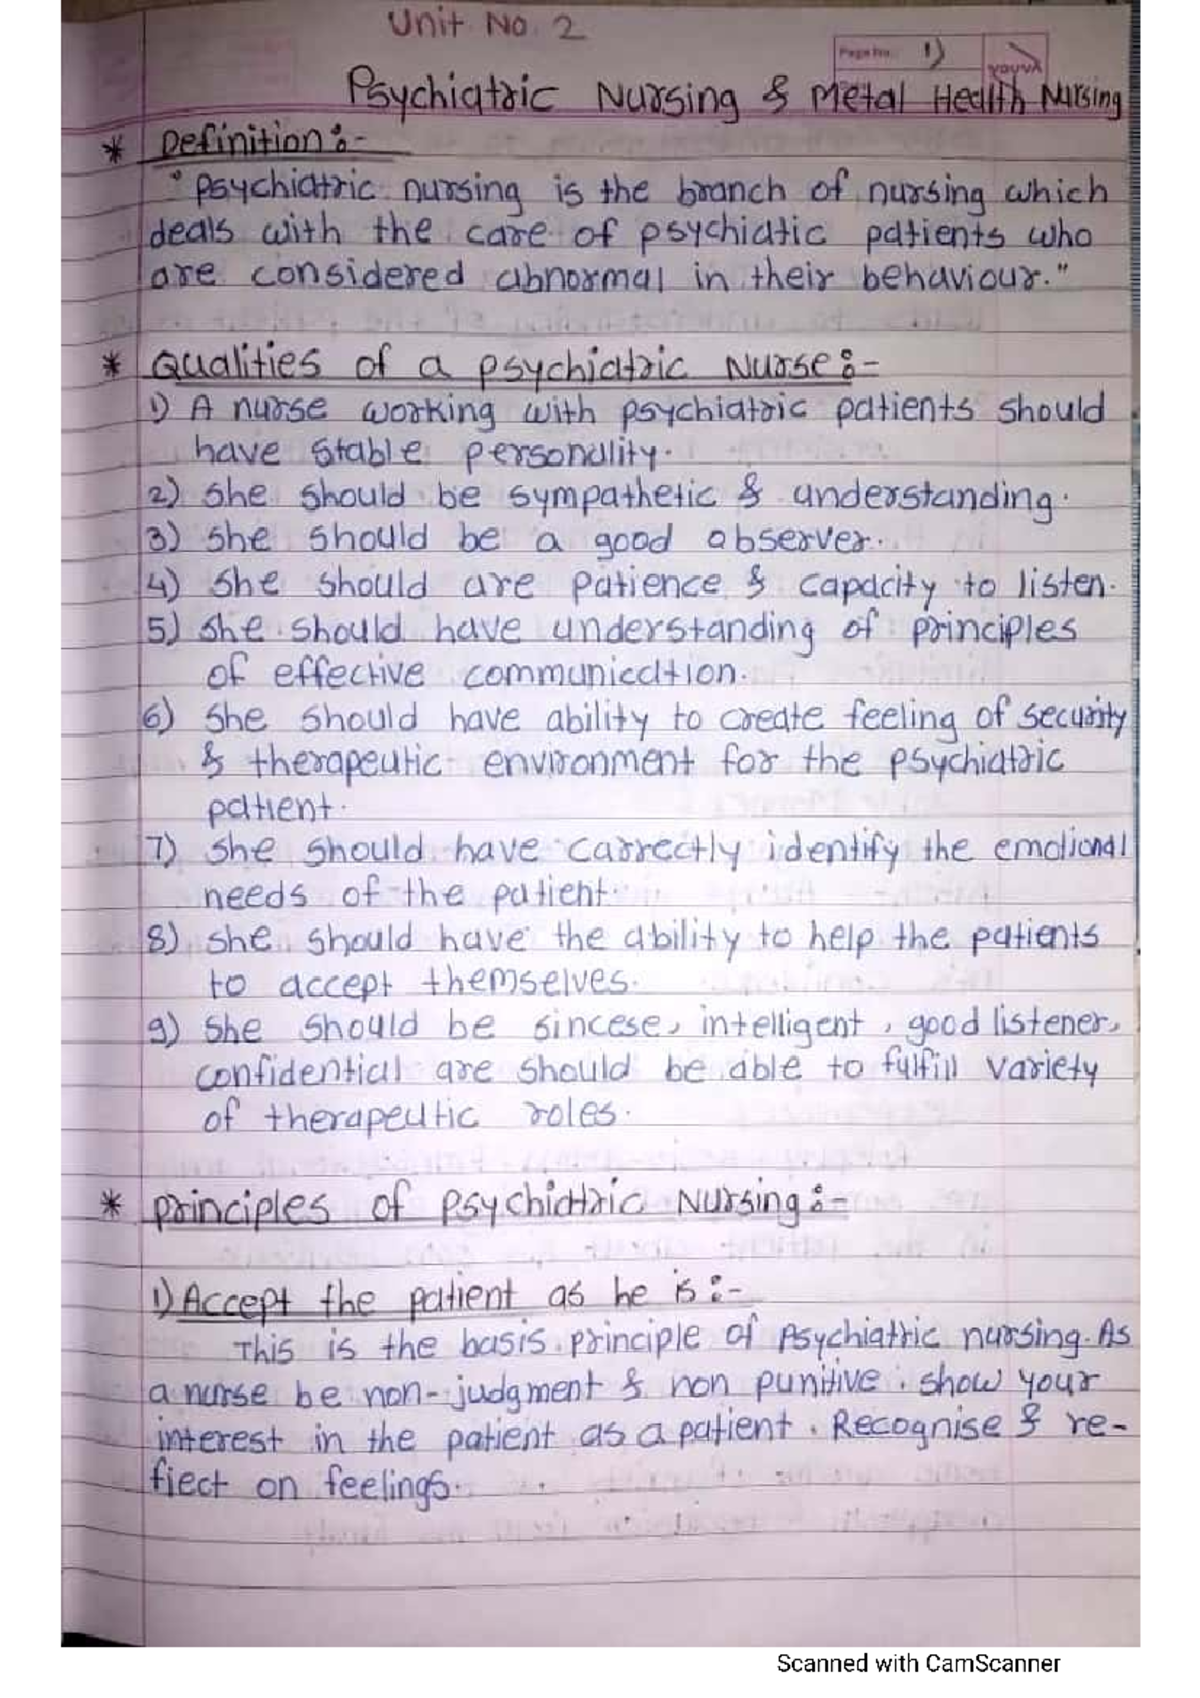 Unit No. 2
Page No. 1)
YOUVA
Psychiatric Nursing & Metal Health Nursing
* Definition :-
"Psychiatric nursing is the branch of nursing which
deals with the care of psychiatic patients who
are considered abnormal in their behaviour."
* Qualities of a psychiatric Nurse :-
1) A nurse working with psychiatric patients should
have stable personality.
2) She should be sympathetic & understanding.
3) She should be a good observer.
4) She should are patience & capacity to listen.
5) She should have understanding of principles
of effective communication.
6) She should have ability to create feeling of security
& therapeutic environment for the psychiatric
patient.
7) She should have carrectly identify the emotional
needs of the patient.
8) she should have the ability to help the patients
to accept themselves.
9) She should be sincese, intelligent, good listener,
confidential are should be able to fulfill variety
of therapeutic roles.
* principles of psychiatric Nursing :-
1) Accept the patient as he is :-
This is the basis principle of Psychiatric nursing. As
a nurse be non-judgment & non punitive. show your
interest in the patient as a patient. Recognise & re-
flect on feelings.
Scanned with CamScanner